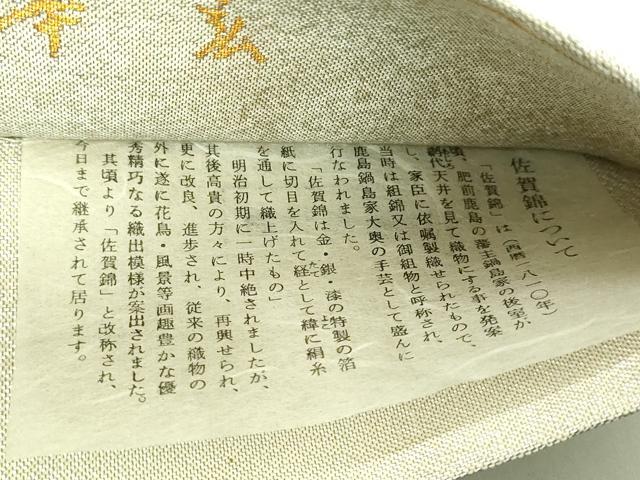 佐賀錦について
「佐賀錦」は(西暦一八一〇年)
頃、肥前鹿島の藩主鍋島家の後室が
網代天井を見て織物にする事を発案
し、家臣に依嘱製織せられたもので、
当時は組錦又は御組物と呼称され、
鹿島鍋島家大奥の手芸として盛んに
行なわれました。
「佐賀錦は金・銀・漆の特製の箔
紙に切目を入れて経たてとして緯よこに絹糸
を通して織上げたもの」
明治初期に一時中絶されましたが、
其後高貴の方々により、再興せられ、
更に改良、進歩され、従来の織物の
外に遂に花鳥・風景等画趣豊かな優
秀精巧なる織出模様が案出されました。
其頃より「佐賀錦」と改称され、
今日まで継承されて居ります。